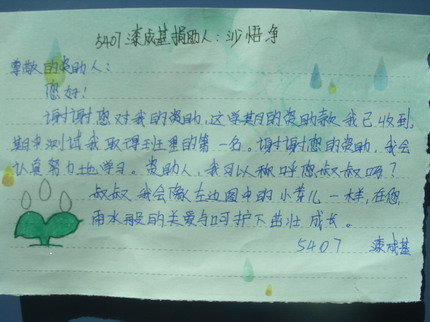 5407 滦成基捐助人：沙悟净
尊敬的资助人：
您好！
谢谢您对我的资助，这学期的资助款我已收到，
期末测试我取得班里的第一名。谢谢您的资助，我会
认真努力地学习。资助人，我可以称呼您叔叔吗？
叔叔我会像左边图中的小苗儿一样，在您
雨水般的关爱与呵护下茁壮成长。
5407 滦成基